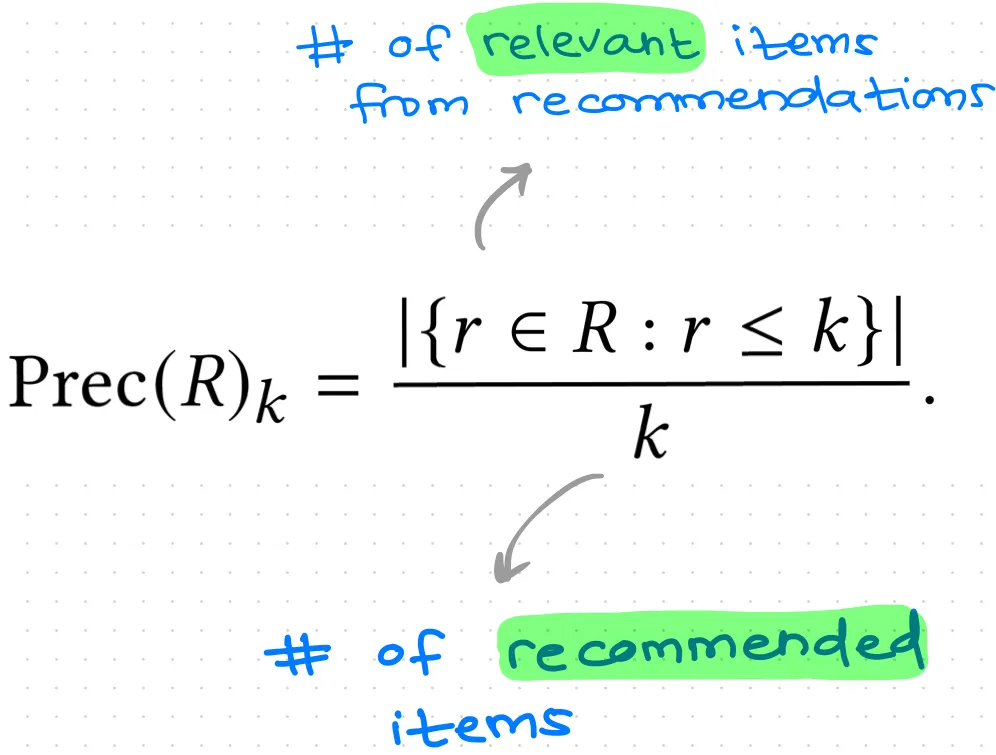 # of relevant items
from recommendations
Prec(R)ₖ = |{r ∈ R : r ≤ k}| / k .
# of recommended
items